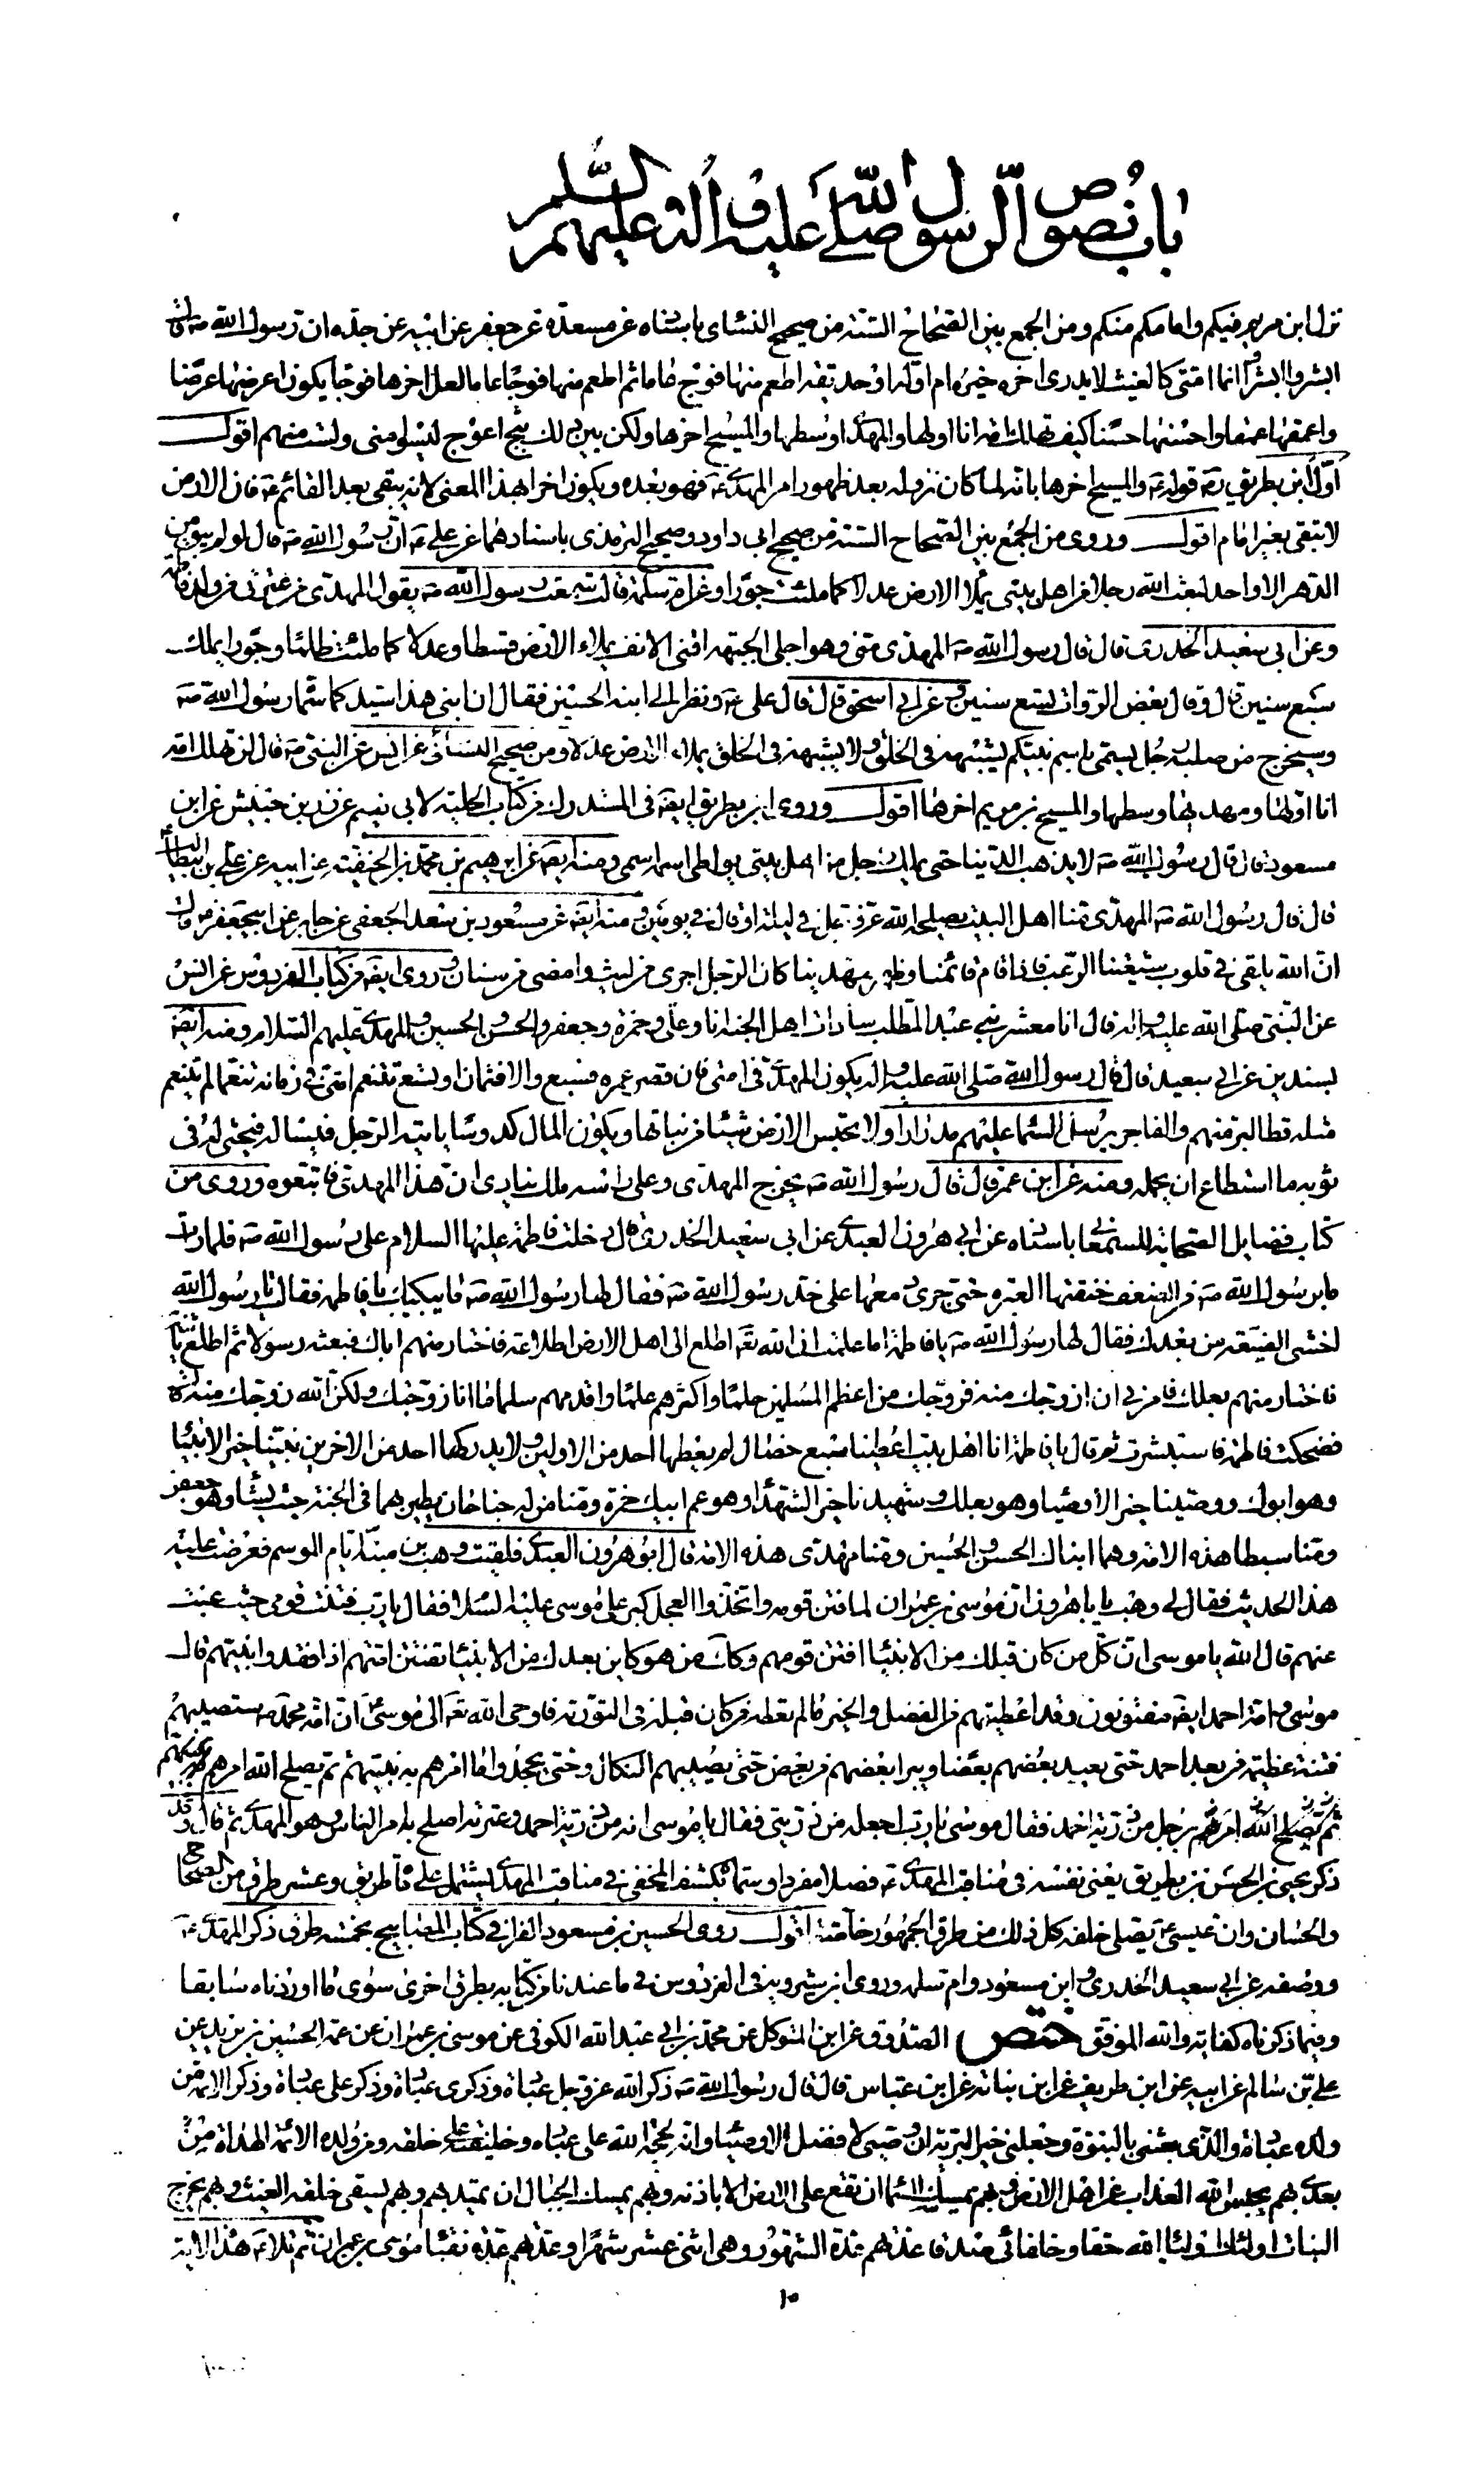 باب نصوص الرسول صلى الله عليه وآله عليهم السلم
نزل ابن مريم فيكم وامامكم منكم ومن الجمع بين الصحاح الستة من صحيح النسائى باسناده عن مسعدة عن جعفر عن ابيه عن جده ان رسول الله صه قال
ابشروا ابشروا انما امتى كالغيث لا يدرى اخره خير ام اوله او كحديقة اطعم منها فوج عاما ثم اطعم منها فوجا عاما لعل اخرها فوجا يكون اعرضها عرضا
واعمقها عمقا واحسنها حسنا كيف تهلك امة انا اولها والمهدى اوسطها والمسيح اخرها ولكن بين ذلك ثبج اعوج ليسوا منى ولست منهم اقول
اوّل ابن بطريق ره قوله عه والمسيح اخرها بانه لما كان نزوله بعد ظهور امر المهدى عه فهو بعده ويكون اخرا بهذا المعنى لا انه يبقى بعد القائم عه فان الارض
لا تبقى بغير امام اقول وروى من الجمع بين الصحاح الستة من صحيح ابى داود وصحيح الترمذى باسنادهما عن على عه ان رسول الله صه قال لو لم يبق من
الدهر الا واحد لبعث الله رجلا من اهل بيتى يملا الارض عدلا كما ملئت جورا وعن ام سلمة قالت سمعت رسول الله صه يقول المهدى من عترتى من ولد فاطمة
وعن ابى سعيد الخدرى قال قال رسول الله صه المهدى منى وهو اجلى الجبهة اقنى الانف يملاء الارض قسطا وعدلا كما ملئت ظلما وجورا يملك
سبع سنين قال وقال بعض الرواة تسع سنين وعن ابى اسحق قال قال على عه ونظر الى ابنه الحسين فقال ان ابنى هذا سيد كما سماه رسول الله صه
وسيخرج من صلبه رجل يسمى باسم نبيكم يشبهه فى الخلق ولا يشبهه فى الخلق يملاء الارض عدلا ومن صحيح النسائى عن انس عن النبى صه قال لن تهلك امة
انا اولها ومهديها وسطها والمسيح بن مريم اخرها اقول وروى ابن بطريق ايضه فى المستدرك من كتاب الحلية لابى نعيم عن زر بن حبيش عن ابن
مسعود قال قال رسول الله صه لا يذهب الدنيا حتى يملك رجل من اهل بيتى يواطى اسمه اسمى ومنه ايضه عن ابرهيم بن محمد بن الحنفية عن ابيه عن على بن ابيطالب عه
قال قال رسول الله صه المهدى منا اهل البيت يصلحه الله عز وجل فى ليلة او قال فى يومين ومنه ايضه عن مسعود بن سعد الجعفى عن جابر عن ابيجعفر عه قال
ان الله يلقى فى قلوب شيعتنا الرعب فاذا قام قائمنا وظهر مهدينا كان الرجل اجرى من ليث وامضى من سنان وروى ايضه من كتاب الفردوس عن انس
عن النبى صلى الله عليه واله قال انا معشر بنى عبد المطلب سادات اهل الجنة انا وعلى وحمزة وجعفر والحسن والحسين والمهدى عليهم السلام ومنه ايضه
بسندين عن ابى سعيد قال قال رسول الله صلى الله عليه واله يكون المهدى فى امتى فان قصر عمره فسبع والا فثمان او تسع تتنعم امتى فى زمانه تنعما لم يتنعم
مثله قط البر منهم والفاجر يرسل السماء عليهم مدرارا ولا تحتبس الارض شيئا من نباتها ويكون المال كدوسا ياتيه الرجل فيساله فيحثى له فى
ثوبه ما استطاع ان يحمله ومنه عن ابن عمر قال قال رسول الله صه يخرج المهدى وعلى راسه ملك ينادى ان هذا المهدى فاتبعوه وروى من
كتاب فضايل الصحابة للسمعانى باسناده عن ابى هرون العبدى عن ابى سعيد الخدرى قال دخلت فاطمة عليها السلام على رسول الله صه فلما رات
ما برسول الله صه من الضعف خنقتها العبرة حتى جرى دمعها على خد رسول الله صه فقال لها رسول الله صه ما يبكيك يا فاطمه فقالت يا رسول الله
اخشى الضيعة من بعدك فقال لها رسول الله صه يا فاطمة اما علمت ان الله تعه اطلع الى اهل الارض اطلاعة فاختار منهم اباك فبعثه رسولا ثم اطلع ثانية
فاختار منهم بعلك فامرنى ان ازوجك منه فزوجك من اعظم المسلمين حلما واكثرهم علما واقدمهم سلما ما انا زوجتك ولكن الله زوجك منه قال
فضحكت فاطمة فاستبشرت ثم قال يا فاطمة انا اهل بيت اعطينا سبع خصال لم يعطها احد من الاولين ولا يدركها احد من الاخرين نبينا خير الانبياء
وهو ابوك ووصينا خير الاوصياء وهو بعلك وشهيدنا خير الشهداء وهو عم ابيك حمزة ومنا من له جناحان يطير بهما فى الجنة حيث يشاء وهو جعفر
ومنا سبطا هذه الامة وهما ابناك الحسن والحسين ومنا مهدى هذه الامة قال ابو هرون العبدى فلقيت وهب بن منبه ايام الموسم فعرضت عليه
هذا الحديث فقال لى وهب يا باهرون ان موسى بن عمران لما فتن قومه واتخذوا العجل كبر على موسى عليه السلام فقال يا رب فتنت قومى حيث غبت
عنهم قال الله يا موسى ان كل من كان قبلك من الانبياء افتتن قومهم وكذلك من هو كاين بعدك من الانبياء تفتتن امتهم اذا فقدوا نبيهم قال
موسى وامة احمد ايضه مفتونون وقد اعطيتهم من الفضل والخير ما لم تعطه من كان قبله فى التورية فاوحى الله تعه الى موسى ان امة محمد صه ستصيبهم
فتنة عظيمة من بعد احمد حتى يعبد بعضهم بعضا ويبرا بعضهم من بعض حتى يصيبهم النكال وحتى يجحدوا ما امرهم به نبيهم ثم يصلح الله امرهم
ثم يصلح الله امرهم برجل من ذرية احمد فقال موسى يا رب اجعله من ذريتى فقال يا موسى انه من ذرية احمد وعترته اصلح به امر الناس وهو المهدى ثم قال وقد
ذكر يحيى بن الحسن بن بطريق يعنى نفسه فى مناقب المهدى عه فصلا مفردا وسماه كشف المخفى فى مناقب المهدى يشتمل على ماة طريق وعشر طرق من الصحاح
والحسان وان عيسى عه يصلى خلفه كل ذلك من طرق الجمهور خاصة اقول روى الحسين بن مسعود الفرا فى كتاب المصابيح بخمسة طرق ذكر المهدى عه
ووصفه عن ابى سعيد الخدرى وابن مسعود وام سلمه وروى ابن شيرويه فى الفردوس فى ما عندنا من كتابه بطرق اخرى سوى ما اوردناه سابقا
وفيما ذكرناه كفاية والله الموفق ختص الصدوق عن ابن المتوكل عن محمد بن ابى عبد الله الكوفى عن موسى بن عمران عن عمه الحسين بن يزيد عن
على بن سالم عن ابيه عن ابن طريف عن ابن نباتة عن ابن عباس قال قال رسول الله صه ذكر الله عز وجل عبادة وذكرى عبادة وذكر على عبادة وذكر الائمة من
ولده عبادة والذى بعثنى بالنبوة وجعلنى خير البرية ان وصيى لافضل الاوصياء وانه لحجة الله على عباده وخليفته على خلقه ومن ولده الائمة الهداة من
بعدى بهم يحبس الله العذاب عن اهل الارض وبهم يمسك السماء ان تقع على الارض الا باذنه وبهم يمسك الجبال ان تميد بهم وبهم يسقى خلقه الغيث وبهم يخرج
النبات اولئك اولياء الله حقا وخلفائى صدقا عدتهم عدة الشهور وهى اثنى عشر شهرا وعدتهم عدة نقباء موسى بن عمران ثم تلا عه هذه الاية
١٠